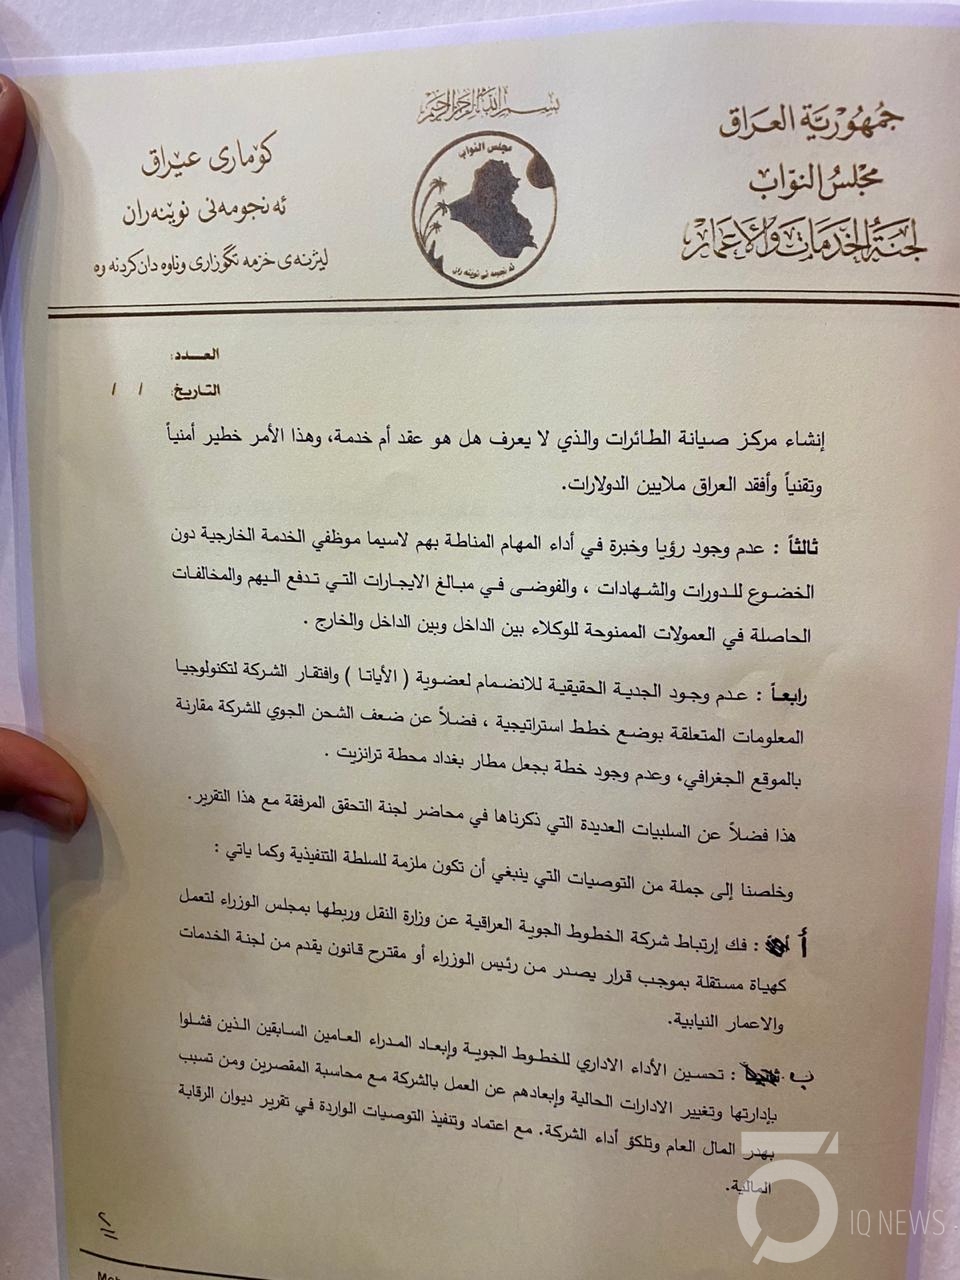 بسم الله الرحمن الرحيم
جمهورية العراق
مجلس النواب
لجنة الخدمات والاعمار
كۆماری عێراق
ئه نجومه نی نوێنه ران
لیژنه ی خزمه تگوزاری وناوه دان کردنه وه
مجلس النواب
ئه نجومه نی نوێنه ران
العـــدد:
التاريخ: / /
إنشاء مركز صيانة الطائرات والذي لا يعرف هل هو عقد أم خدمة، وهذا الأمر خطير أمنياً
وتقنياً وأفقد العراق ملايين الدولارات.
ثالثاً : عدم وجود رؤيا وخبرة في أداء المهام المناطة بهم لاسيما موظفي الخدمة الخارجية دون
الخضوع للدورات والشهادات ، والفوضى في مبالغ الايجارات التي تدفع اليهم والمخالفات
الحاصلة في العمولات الممنوحة للوكلاء بين الداخل وبين الداخل والخارج .
رابعاً : عدم وجود الجدية الحقيقية للانضمام لعضوية ( الأياتا ) وافتقار الشركة لتكنولوجيا
المعلومات المتعلقة بوضع خطط استراتيجية ، فضلاً عن ضعف الشحن الجوي للشركة مقارنة
بالموقع الجغرافي، وعدم وجود خطة بجعل مطار بغداد محطة ترانزيت .
هذا فضلاً عن السلبيات العديدة التي ذكرناها في محاضر لجنة التحقق المرفقة مع هذا التقرير.
وخلصنا إلى جملة من التوصيات التي ينبغي أن تكون ملزمة للسلطة التنفيذية وكما ياتي :
أ : فك إرتباط شركة الخطوط الجوية العراقية عن وزارة النقل وربطها بمجلس الوزراء لتعمل
كهياة مستقلة بموجب قرار يصدر من رئيس الوزراء أو مقترح قانون يقدم من لجنة الخدمات
والاعمار النيابية.
ب : تحسين الأداء الاداري للخطوط الجوية وإبعاد المدراء العامين السابقين الذين فشلوا
بإدارتها وتغيير الادارات الحالية وإبعادهم عن العمل بالشركة مع محاسبة المقصرين ومن تسبب
بهدر المال العام وتلكؤ أداء الشركة. مع اعتماد وتنفيذ التوصيات الواردة في تقرير ديوان الرقابة
المالية.
٢
IQ NEWS